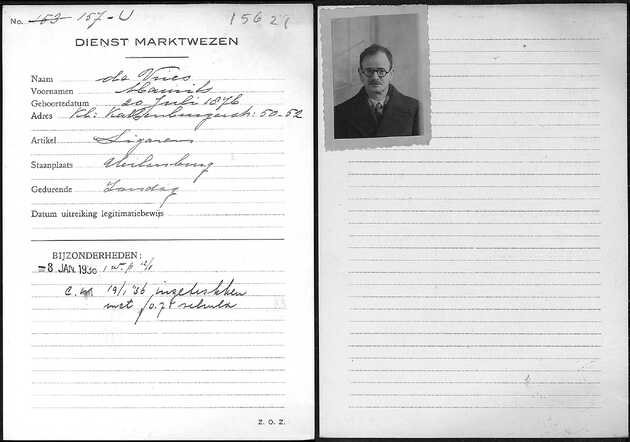 No. 153 157-U 15621
DIENST MARKTWEZEN
Naam de Vries
Voornamen Maurits
Geboortedatum 20 Juli 1876
Adres Kl: Kattenburgerstr: 50-52
Artikel Sigaren
Staanplaats Uilenburg
Gedurende Zondag
Datum uitreiking legitimatiebewijs
BIJZONDERHEDEN:
-8 JAN. 1936 1 w.
19/1 '36 ingetrokken
met f 0.75 schuld
Z. O. Z.